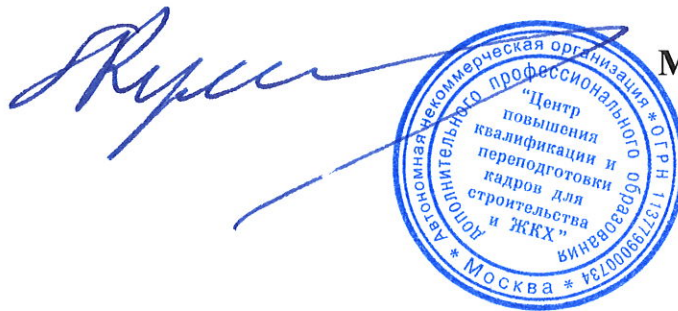 М
Автономная некоммерческая организация * ОГРН 1137799000734
* Москва *
дополнительного профессионального образования
"Центр
повышения
квалификации и
переподготовки
кадров для
строительства
и ЖКХ"